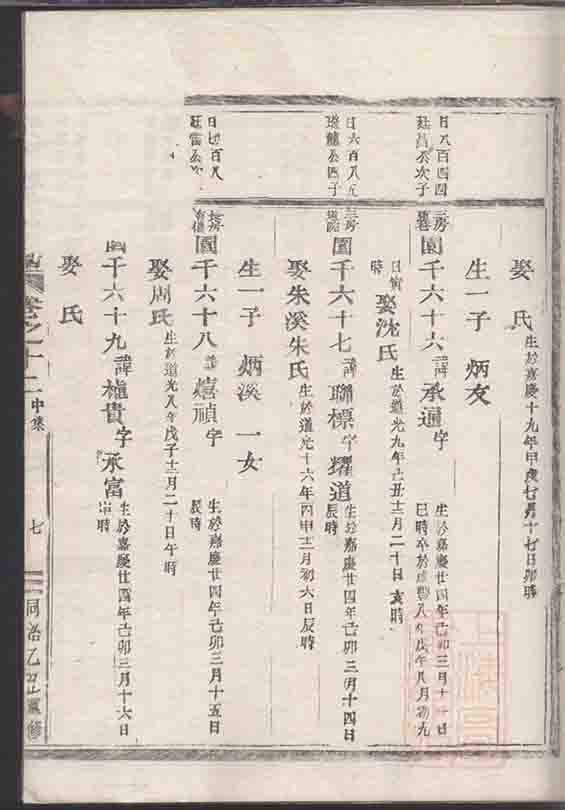 娶 氏 生於嘉慶十九年甲戌七月十七日卯時
生一子 炳友
日八百四四
廷昌公次子
三房
園千六十六 諱承通 字 生於嘉慶廿四年己卯三月十一日
巳時卒於咸豐八年戊午八月初九
日寅
時 娶沈氏 生於道光九年己丑十二月二十日亥時
日六百八五
瓊龍公四子
三房
園千六十七 諱聯標 字耀道 生於嘉慶廿四年己卯三月十四日
辰時
娶朱溪朱氏 生於道光十六年丙申十二月初六日辰時
生一子 炳溪 一女
日七百八
廷富公
長房
園千六十八 諱熺禎 字 生於嘉慶廿四年己卯三月十五日
辰時
娶周氏 生於道光八年戊子十二月二十日午時
園千六十九 諱植貴 字承富 生於嘉慶廿四年己卯三月十六日
時
娶 氏
卷之十二 中集 七 同治乙丑重修